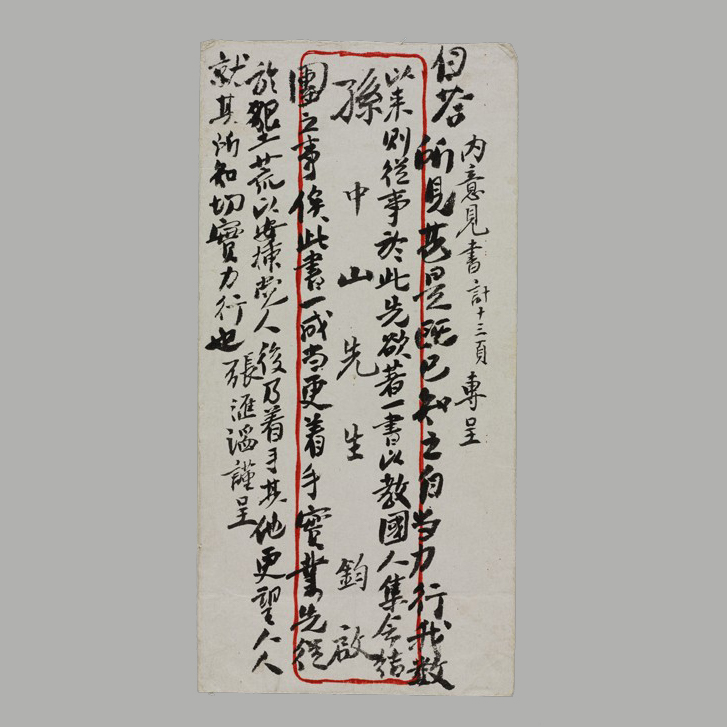 內意見書計十三頁 專呈
答
所見甚是既已知之自當力行我數
以來則從事於此先欲著一書以教國人集會結
孫中山先生 鈞啟
團之事俟此書一成當更着手實業先從
於墾荒以安插人後乃着手其他更望人人
就其所知切實力行也
張滙滔謹呈